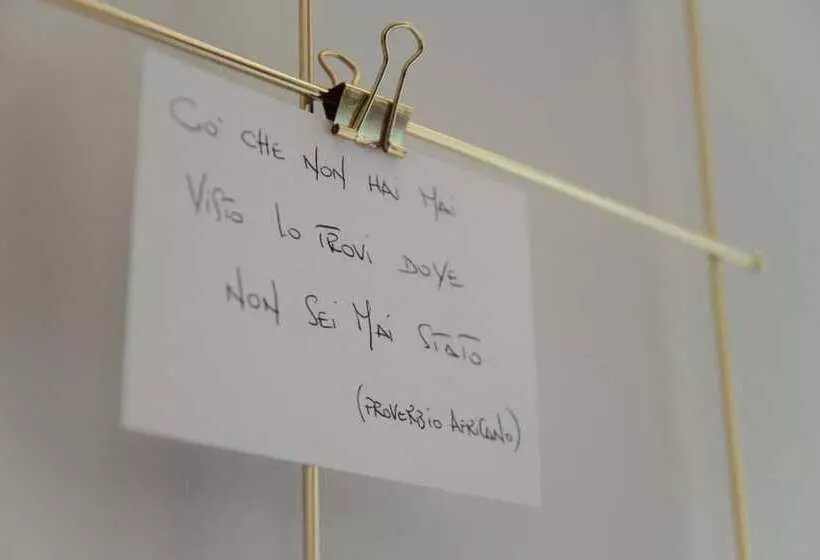 CIO' CHE NON HAI MAI
VISTO LO TROVI DOVE
NON SEI MAI STATO
(PROVERBIO AFRICANO)